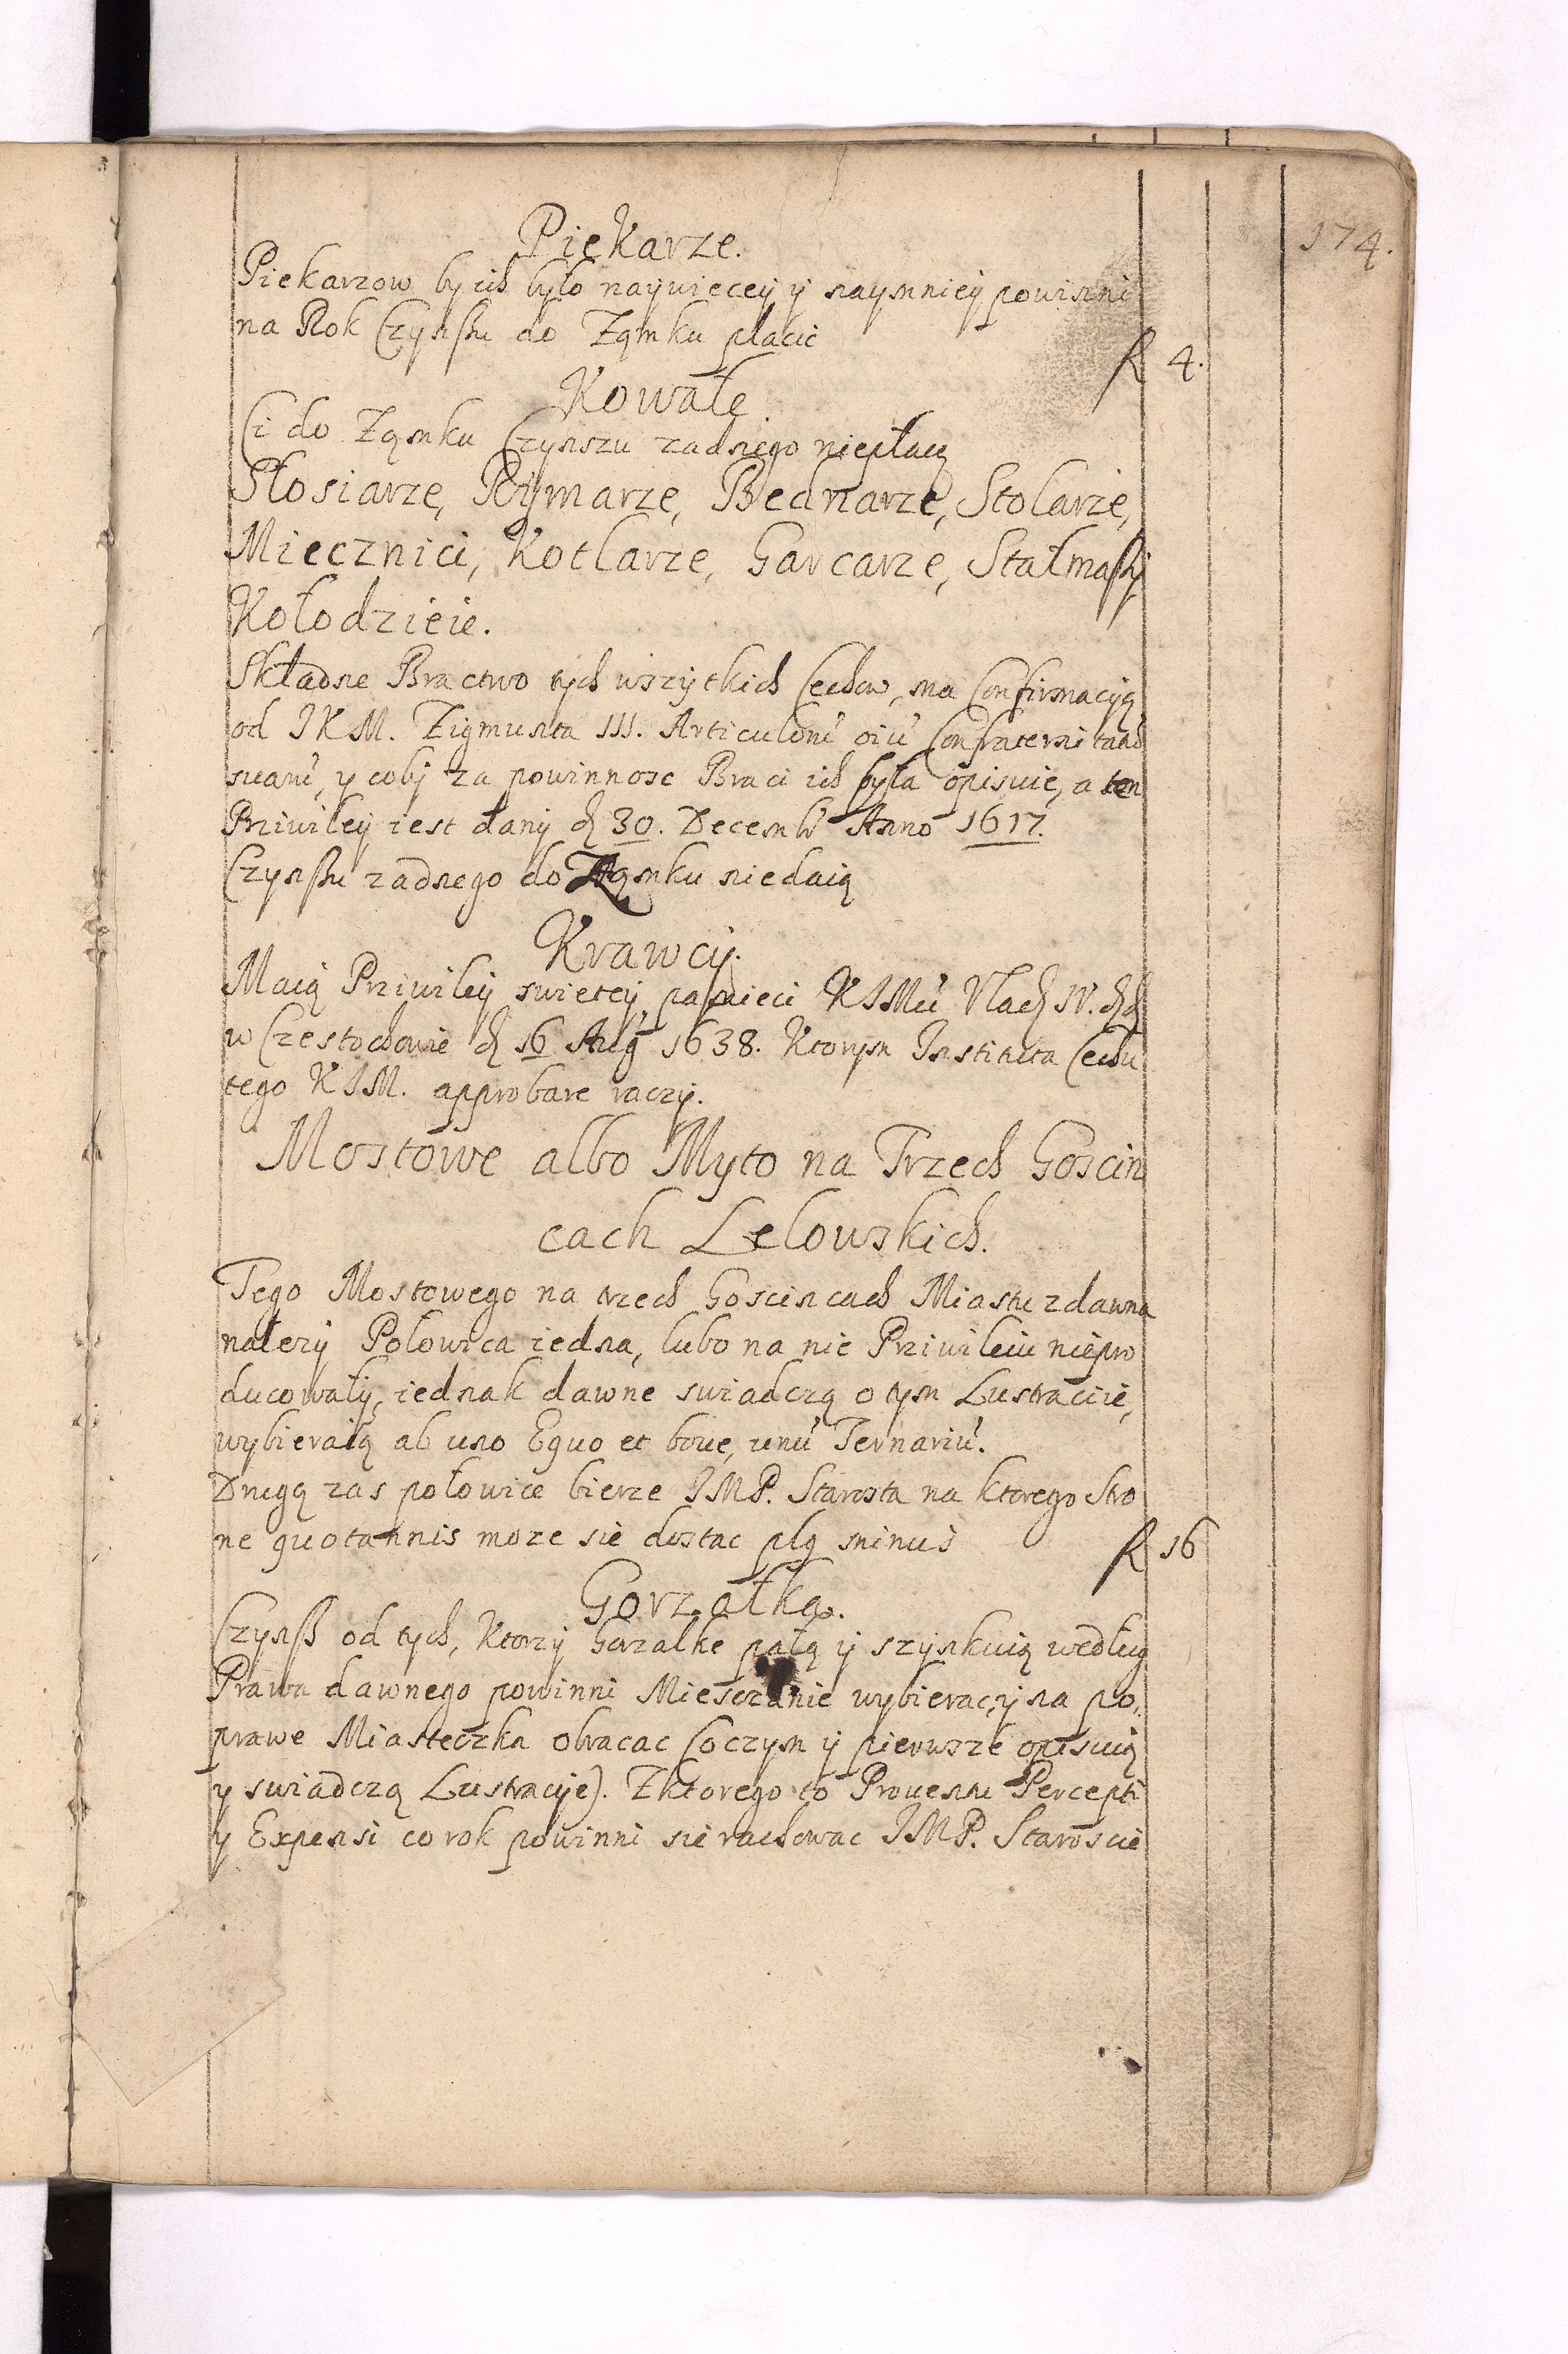 174.
Piekarze.
Piekarzow by ich było naywiecey y naymniey powinni
na Rok Czynszu do Zamku placic
f 4.
Kowale
Ci do Zamku Czynszu zadnego niepłacą
Slosiarze, Rymarze, Bednarze, Stolarze,
Miecznici, Kotlarze, Garcarze, Stalmaszy
Kołodzieie.
Składne Bractwo tych wszytkich Cechow, ma Confirmacyą
od JKM. Zigmunta III. Articulorũ oiũ Confraternitatis
suam, y coby za powinnosc Braci ich była opisuie, a ten
Priwiley iest dany d 30. Decemb Anno 1617.
Czynszu zadnego do Zamku niedaią
Krawcy.
Maią Priwiley swietey pamieci KJMci Vlad IV.
w Czestochowie d 16 Aug 1638. Ktorym Instituta Cechu
tego KJM. approbare raczy.
Mostowe albo Myto na Trzech Goscin
cach Lelowskich.
Tego Mostowego na trzech Goscincach Miastu zdawna
nalezy Polowica iedna, lubo na nie Priwileiu niepro
ducowały, iednak dawne swiadczą o tym Lustraciie,
wybieraią ab uno Equo et boue, unũ Ternariũ.
Drugą zas połowice bierze JMP. Starosta na ktorego Stro
ne quotannis moze sie dostac plq minus
f 16
Gorzałka.
Czynsz od tych, Ktorzy Gorzalke palą y szynkuią według
Prawa dawnego powinni Miesczanie wybierac, y na po,
prawe Miasteczka obracac (oczym y pierwsze opisuią
y swiadczą Lustracye). Zktorego to Prouentu Percepti
y Expensi co rok powinni sie rachowac JMP. Staroscie